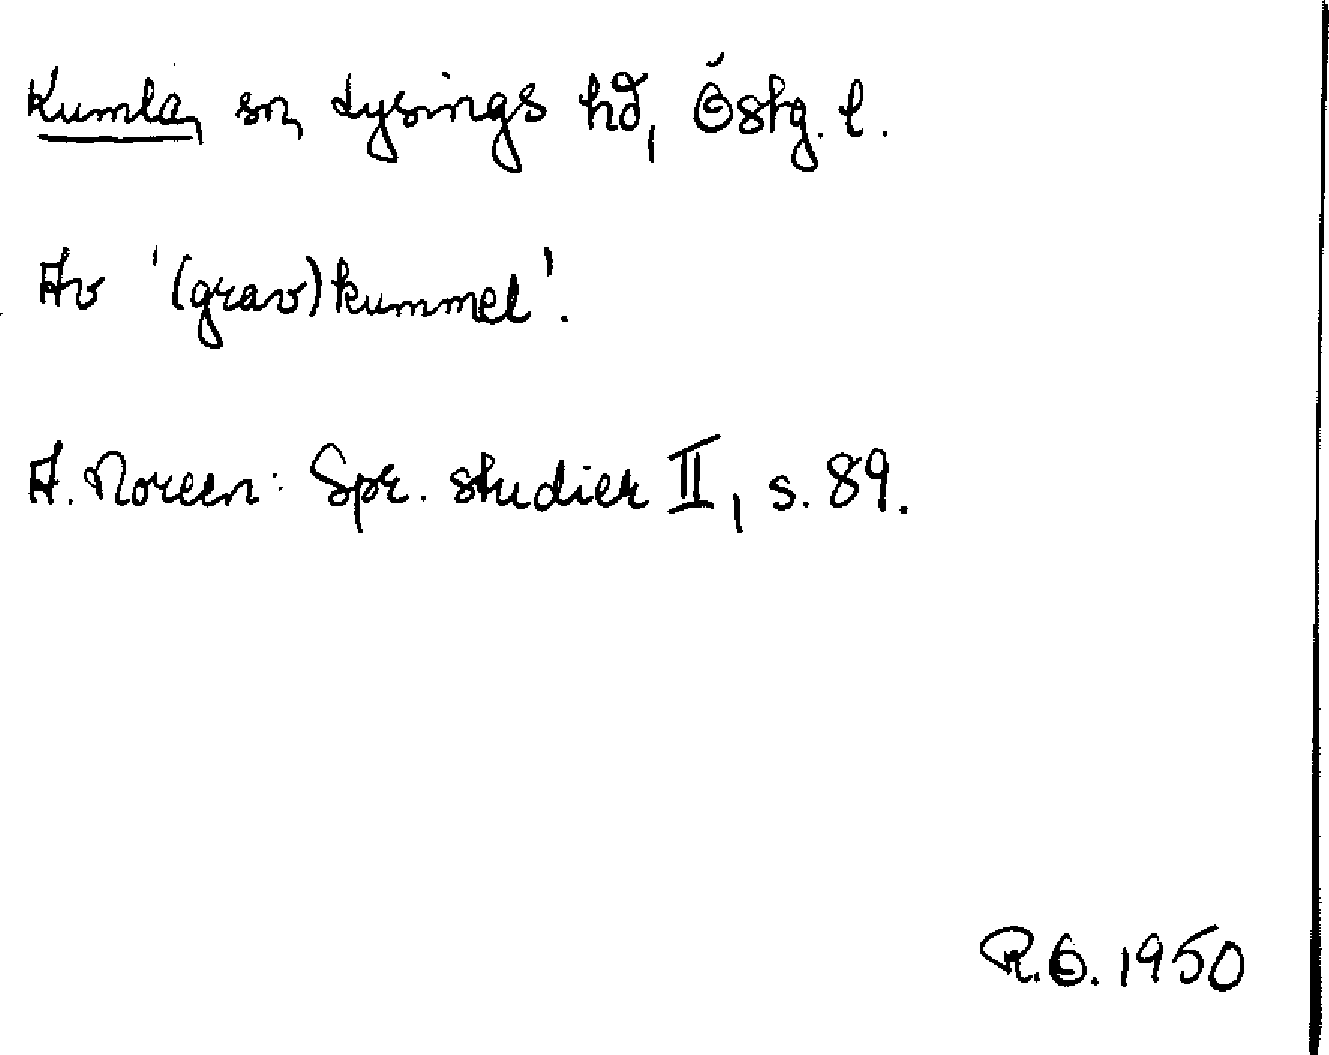 Kumla, sn, Lysings hd, Östg. l.
Av '(grav)kummel'.
A. Noreen: Spr. studier II, s. 89.
R.O. 1950